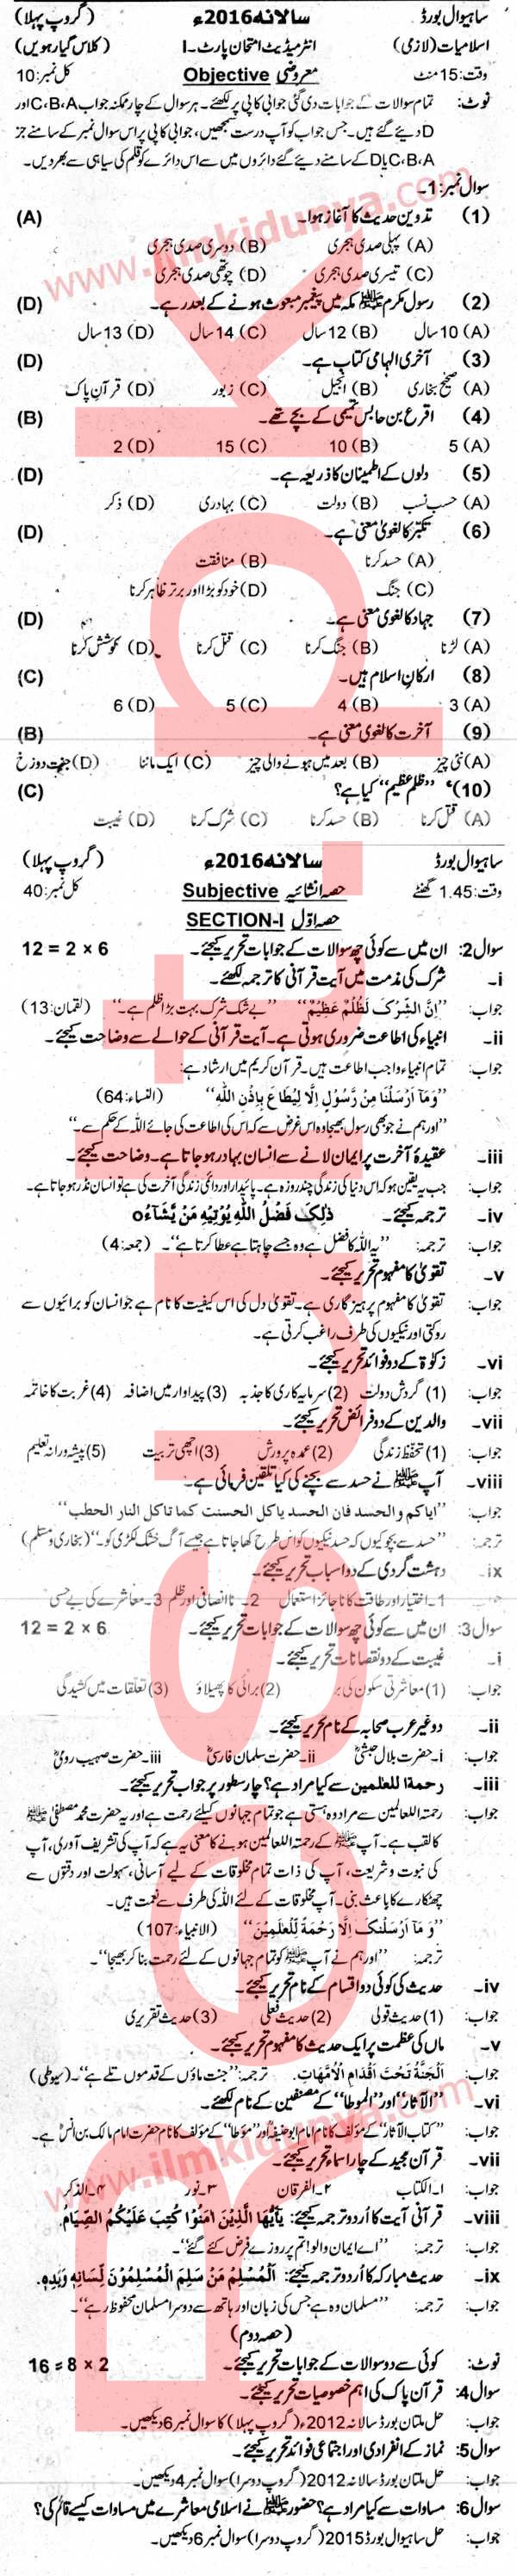 ساہیوال بورڈ سالانہ 2016ء (گروپ پہلا)
اسلامیات (لازمی) انٹرمیڈیٹ امتحان پارٹ-I (کلاس گیارہویں)
وقت: 15 منٹ معروضی Objective کل نمبر: 10
نوٹ: تمام سوالات کے جوابات دی گئی جوابی کاپی پر لکھئے۔ ہر سوال کے چار ممکنہ جواب C،B،A اور
D دیئے گئے ہیں۔ جس جواب کو آپ درست سمجھیں، جوابی کاپی پر اس سوال نمبر کے سامنے
C،B،A یا D کے سامنے دیئے گئے دائروں میں سے اس دائرے کو قلم کی سیاہی سے بھر دیں۔
سوال نمبر: 1۔
(1) تدوین حدیث کا آغاز ہوا۔ (A)
(A) پہلی صدی ہجری (B) دوسری صدی ہجری
(C) تیسری صدی ہجری (D) چوتھی صدی ہجری
(2) رسول مکرم ﷺ مکہ میں پیغمبر مبعوث ہونے کے بعد رہے۔ (D)
(A) 10 سال (B) 12 سال (C) 14 سال (D) 13 سال
(3) آخری الہامی کتاب ہے۔ (D)
(A) صحیح بخاری (B) انجیل (C) زبور (D) قرآن پاک
(4) اقرع بن حابس تمیمی کے بچے تھے۔ (B)
(A) 5 (B) 10 (C) 15 (D) 2
(5) دلوں کے اطمینان کا ذریعہ ہے۔ (D)
(A) حسب نسب (B) دولت (C) بہادری (D) ذکر
(6) تکبر کا لغوی معنی ہے۔ (D)
(A) حسد کرنا (B) منافقت
(C) جنگ (D) خود کو بڑا اور برتر ظاہر کرنا
(7) جہاد کا لغوی معنی ہے۔ (D)
(A) لڑنا (B) جنگ کرنا (C) قتل کرنا (D) کوشش کرنا
(8) ارکان اسلام ہیں۔ (C)
(A) 3 (B) 4 (C) 5 (D) 6
(9) آخرت کا لغوی معنی ہے۔ (B)
(A) نئی چیز (B) بعد میں ہونے والی چیز (C) ایک ماننا (D) جنت دوزخ
(10) ”ظلم عظیم“ کیا ہے؟ (C)
(A) قتل کرنا (B) حسد کرنا (C) شرک کرنا (D) غیبت
ساہیوال بورڈ سالانہ 2016ء (گروپ پہلا)
وقت: 1.45 گھنٹے حصہ انشائیہ Subjective کل نمبر: 40
حصہ اوّل SECTION-I
سوال 2: ان میں سے کوئی چھ سوالات کے جوابات تحریر کیجئے۔ 12 = 2 × 6
i- شرک کی مذمت میں آیت قرآنی کا ترجمہ لکھئے۔
جواب: ”اِنَّ الشِّرْکَ لَظُلْمٌ عَظِیْمٌ“ ”بے شک شرک بہت بڑا ظلم ہے۔“ (لقمان: 13)
ii- انبیاء کی اطاعت ضروری ہوتی ہے۔ آیت قرآنی کے حوالے سے وضاحت کیجئے۔
جواب: تمام انبیاء واجب اطاعت ہیں۔ قرآن کریم میں ارشاد ہے:
”وَمَآ اَرْسَلْنَا مِنْ رَّسُوْلٍ اِلَّا لِیُطَاعَ بِاِذْنِ اللہِ“ (النساء: 64)
”اور ہم نے جو بھی رسول بھیجا وہ اس غرض سے کہ اس کی اطاعت کی جائے اللہ کے حکم سے۔“
iii- عقیدہ آخرت پر ایمان لانے سے انسان بہادر ہو جاتا ہے۔ وضاحت کیجئے۔
جواب: جب یہ یقین ہو کہ اس دنیا کی زندگی چند روزہ ہے۔ پائیدار اور دائمی زندگی آخرت کی ہے تو انسان نڈر ہو جاتا ہے۔
iv- ترجمہ کیجئے۔ ذٰلِکَ فَضْلُ اللہِ یُؤْتِیْہِ مَنْ یَّشَآءُ o
جواب: ترجمہ: ”یہ اللہ کا فضل ہے وہ جسے چاہتا ہے عطا کرتا ہے“۔ (جمعہ: 4)
v- تقویٰ کا مفہوم تحریر کیجئے۔
جواب: تقویٰ کا مفہوم پرہیز گاری ہے۔ تقویٰ دل کی اس کیفیت کا نام ہے جو انسان کو برائیوں سے
روکتی اور نیکیوں کی طرف راغب کرتی ہے۔
vi- زکوٰۃ کے دو فوائد تحریر کیجئے۔
جواب: (1) گردش دولت (2) سرمایہ کاری کا جذبہ (3) پیداوار میں اضافہ (4) غربت کا خاتمہ
vii- والدین کے دو فرائض تحریر کیجئے۔
جواب: (1) تحفظ زندگی (2) عمدہ پرورش (3) اچھی تربیت (5) پیشہ ورانہ تعلیم
viii- آپ ﷺ نے حسد سے بچنے کی کیا تلقین فرمائی ہے۔
جواب: ”ایاکم والحسد فان الحسد یاکل الحسنت کما تاکل النار الحطب“
ترجمہ: ”حسد سے بچو کیوں کہ حسد نیکیوں کو اس طرح کھا جاتا ہے جیسے آگ خشک لکڑی کو۔“ (بخاری و مسلم)
ix- دہشت گردی کے دو اسباب تحریر کیجئے۔
جواب: 1۔ اختیار اور طاقت کا ناجائز استعمال 2۔ ناانصافی اور ظلم 3۔ معاشرے کی بے حسی
سوال 3: ان میں سے کوئی چھ سوالات کے جوابات تحریر کیجئے۔ 12 = 2 × 6
i- غیبت کے دو نقصانات تحریر کیجئے۔
جواب: (1) معاشرتی سکون کی بر (2) برائی کا پھیلاؤ (3) تعلقات میں کشیدگی
ii- دو غیر عرب صحابہ کے نام تحریر کیجئے۔
جواب: i۔ حضرت بلال حبشیؓ ii۔ حضرت سلمان فارسیؓ iii۔ حضرت صہیب رومیؓ
iii- رحمۃ اللعلمین سے کیا مراد ہے؟ چار سطور پر جواب تحریر کیجئے۔
جواب: رحمتہ اللعالمین سے مراد وہ ہستی ہے جو تمام جہانوں کیلئے رحمت ہے اور یہ حضرت محمد مصطفیٰ ﷺ
کا لقب ہے۔ آپ ﷺ کے رحمتہ اللعالمین ہونے کا معنی یہ ہے کہ آپ کی تشریف آوری، آپ
کی نبوت و شریعت، آپ کی ذات تمام مخلوقات کے لیے آسانی، سہولت اور دقتوں سے
چھٹکارے کا باعث بنی۔ آپ مخلوقات کے لئے اللہ کی طرف سے نعمت ہیں۔
”وَ مَآ اَرْسَلْنٰکَ اِلَّا رَحْمَةً لِّلْعٰلَمِیْنَ“ (الانبیاء: 107)
ترجمہ: ”اور ہم نے آپ ﷺ کو تمام جہانوں کے لئے رحمت بنا کر بھیجا“۔
iv- حدیث کی کوئی دو اقسام کے نام تحریر کیجئے۔
جواب: (1) حدیث قولی (2) حدیث فعلی (3) حدیث تقریری
v- ماں کی عظمت پر ایک حدیث کا مفہوم تحریر کیجئے۔
جواب: اَلْجَنَّةُ تَحْتَ اَقْدَامِ الْاُمَّهَاتِ۔ ترجمہ: ”جنت ماؤں کے قدموں تلے ہے“۔ (سیوطی)
vi- ”الآثار“ اور ”الموطا“ کے مصنفین کے نام لکھئے۔
جواب: ”کتاب الآثار“ کے مؤلف کا نام امام ابو حنیفہؒ اور ”مؤطا“ کے مؤلف کا نام حضرت امام مالک بن انسؒ ہے۔
vii- قرآن مجید کے چار اسماء تحریر کیجئے۔
جواب: ۱۔ الکتاب ۲۔ الفرقان ۳۔ نور ۴۔ الذکر
viii- قرآنی آیت کا اُردو ترجمہ کیجئے: یٰٓاَیُّهَا الَّذِیْنَ اٰمَنُوْا کُتِبَ عَلَیْکُمُ الصِّیَامُ۔
جواب: ترجمہ: ”اے ایمان والو! تم پر روزے فرض کئے گئے“۔
ix- حدیث مبارکہ کا اُردو ترجمہ کیجئے: اَلْمُسْلِمُ مَنْ سَلِمَ الْمُسْلِمُوْنَ لِّسَانِهٖ وَیَدِهٖ۔
جواب: ترجمہ: ”مسلمان وہ ہے جس کی زبان اور ہاتھ سے دوسرا مسلمان محفوظ رہے“۔
(حصہ دوم)
نوٹ: کوئی سے دو سوالات کے جوابات تحریر کیجئے۔ 16 = 8 × 2
سوال 4: قرآن پاک کی اہم خصوصیات تحریر کیجئے۔
جواب: حل ملتان بورڈ سالانہ 2012ء (گروپ پہلا) کا سوال نمبر 6 دیکھیں۔
سوال 5: نماز کے انفرادی اور اجتماعی فوائد تحریر کیجئے۔
جواب: حل ملتان بورڈ سالانہ 2012 (گروپ دوسرا) سوال نمبر 4 دیکھیں۔
سوال 6: مساوات سے کیا مراد ہے؟ حضور ﷺ نے اسلامی معاشرے میں مساوات کیسے قائم کی؟
جواب: حل ساہیوال بورڈ 2015 (گروپ دوسرا) سوال نمبر 6 دیکھیں۔
www.ilmkidunya.com
www.ilmkidunya.com
BestUrdu.pk